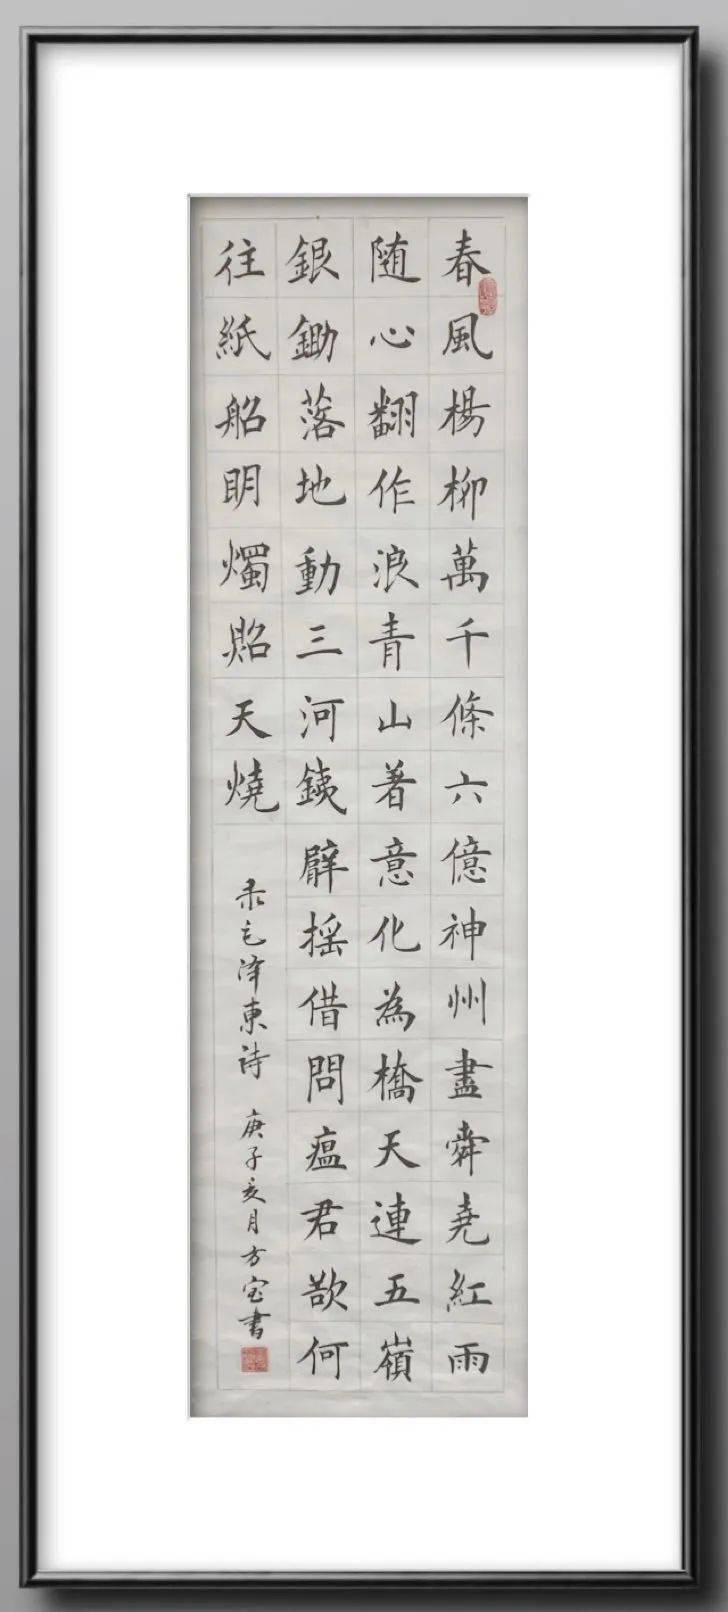 春風楊柳萬千條六億神州盡舜堯紅雨
随心翻作浪青山著意化為橋天連五嶺
銀鋤落地動三河銕臂揺借問瘟君欲何
往紙船明燭照天燒
录毛泽東詩 庚子亥月方宝書